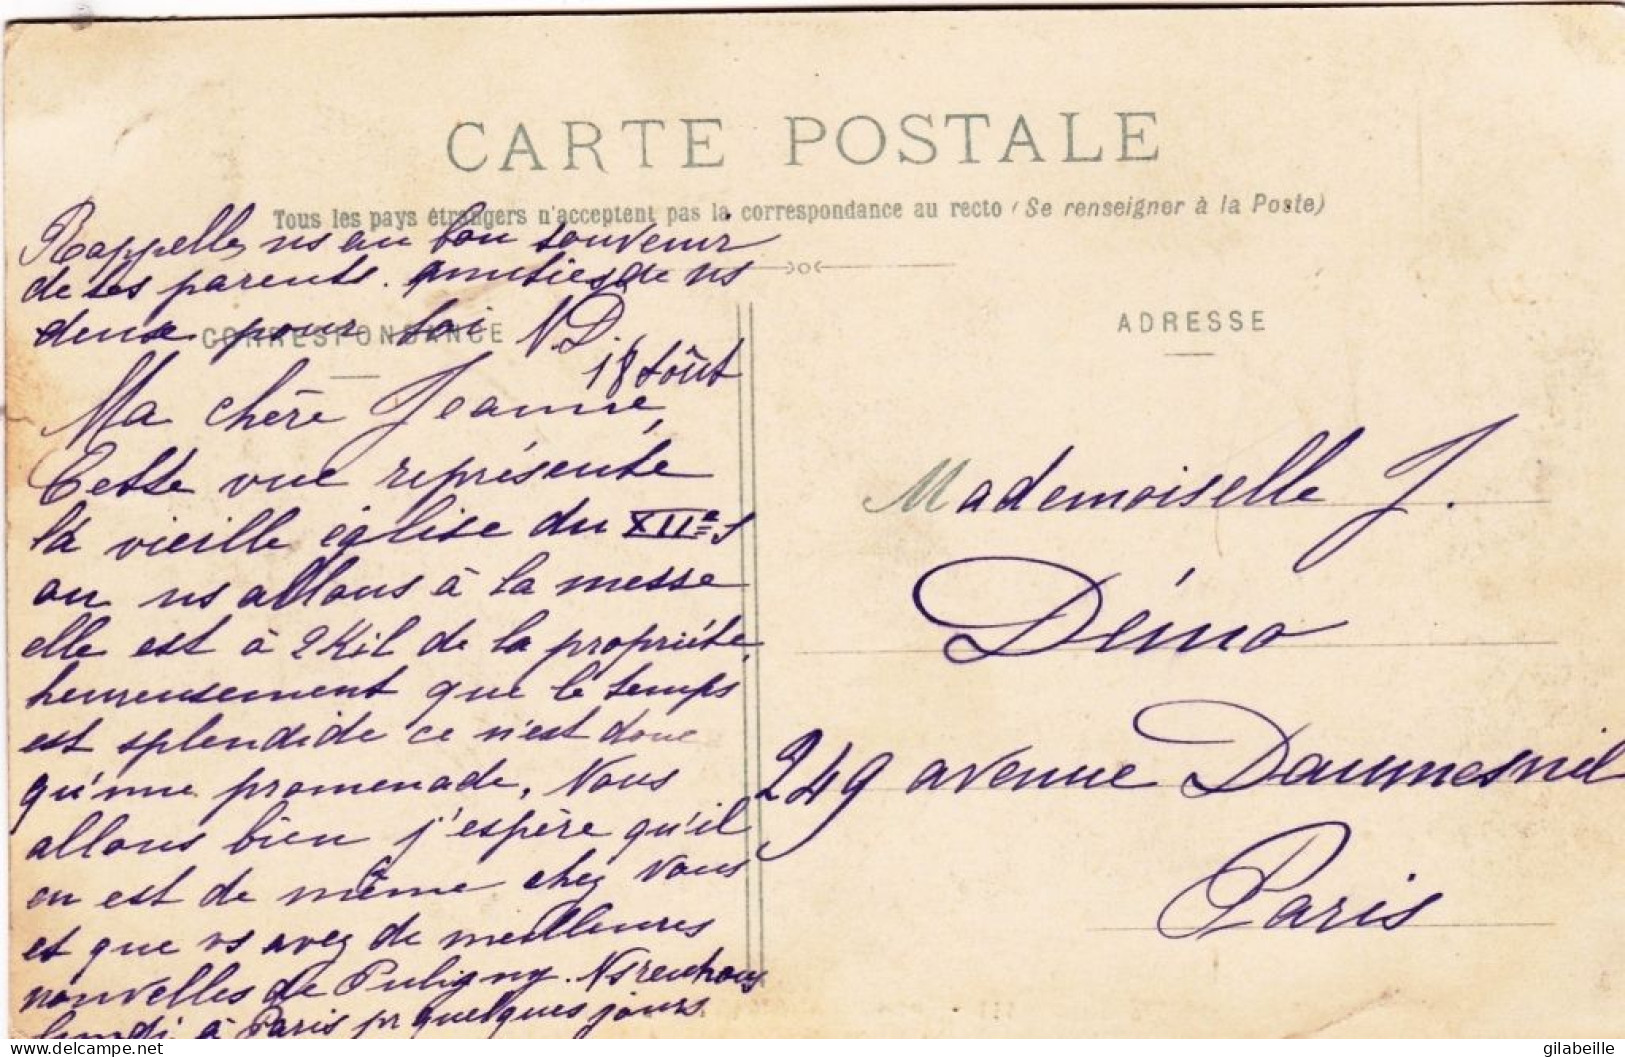 CARTE POSTALE
Tous les pays étrangers n'acceptent pas la correspondance au recto (Se renseigner à la Poste)
Rappelle ns au bon souvenir
de tes parents. Amitiés de ns
deux pour toi N.D.
CORRESPONDANCE
18 Août
Ma chère Jeanne,
Cette vue représente
la vieille église du XIIe s
ou ns allons à la messe
elle est à 2 Kil de la propriété,
heureusement que le temps
est splendide ce n'est donc
qu'une promenade. Nous
allons bien j'espère qu'il
en est de même chez vous
et que vs avez de meilleures
nouvelles de Puligny. Ns rentrons
lundi à Paris pr quelques jours
ADRESSE
Mademoiselle J.
Démo
249 avenue Daumesnil
Paris
gilabeille